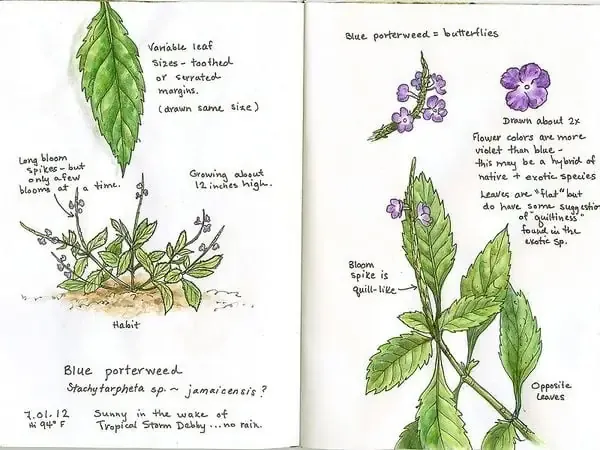 Variable leaf
sizes - toothed
or serrated
margins.
(drawn same size)
Long bloom
spikes - but
only a few
blooms at a time.
Growing about
12 inches high.
Habit
Blue porterweed
Stachytarpheta sp. ~ jamaicensis ?
7.01.12
Hi 94° F
Sunny in the wake of
Tropical Storm Debby ... no rain.
Blue porterweed = butterflies
Drawn about 2x
Flower colors are more
violet than blue -
this may be a hybrid of
native + exotic species
Leaves are "flat" but
do have some suggestion
of "quiltiness"
found in the
exotic sp.
Bloom
spike is
quill-like
Opposite
leaves